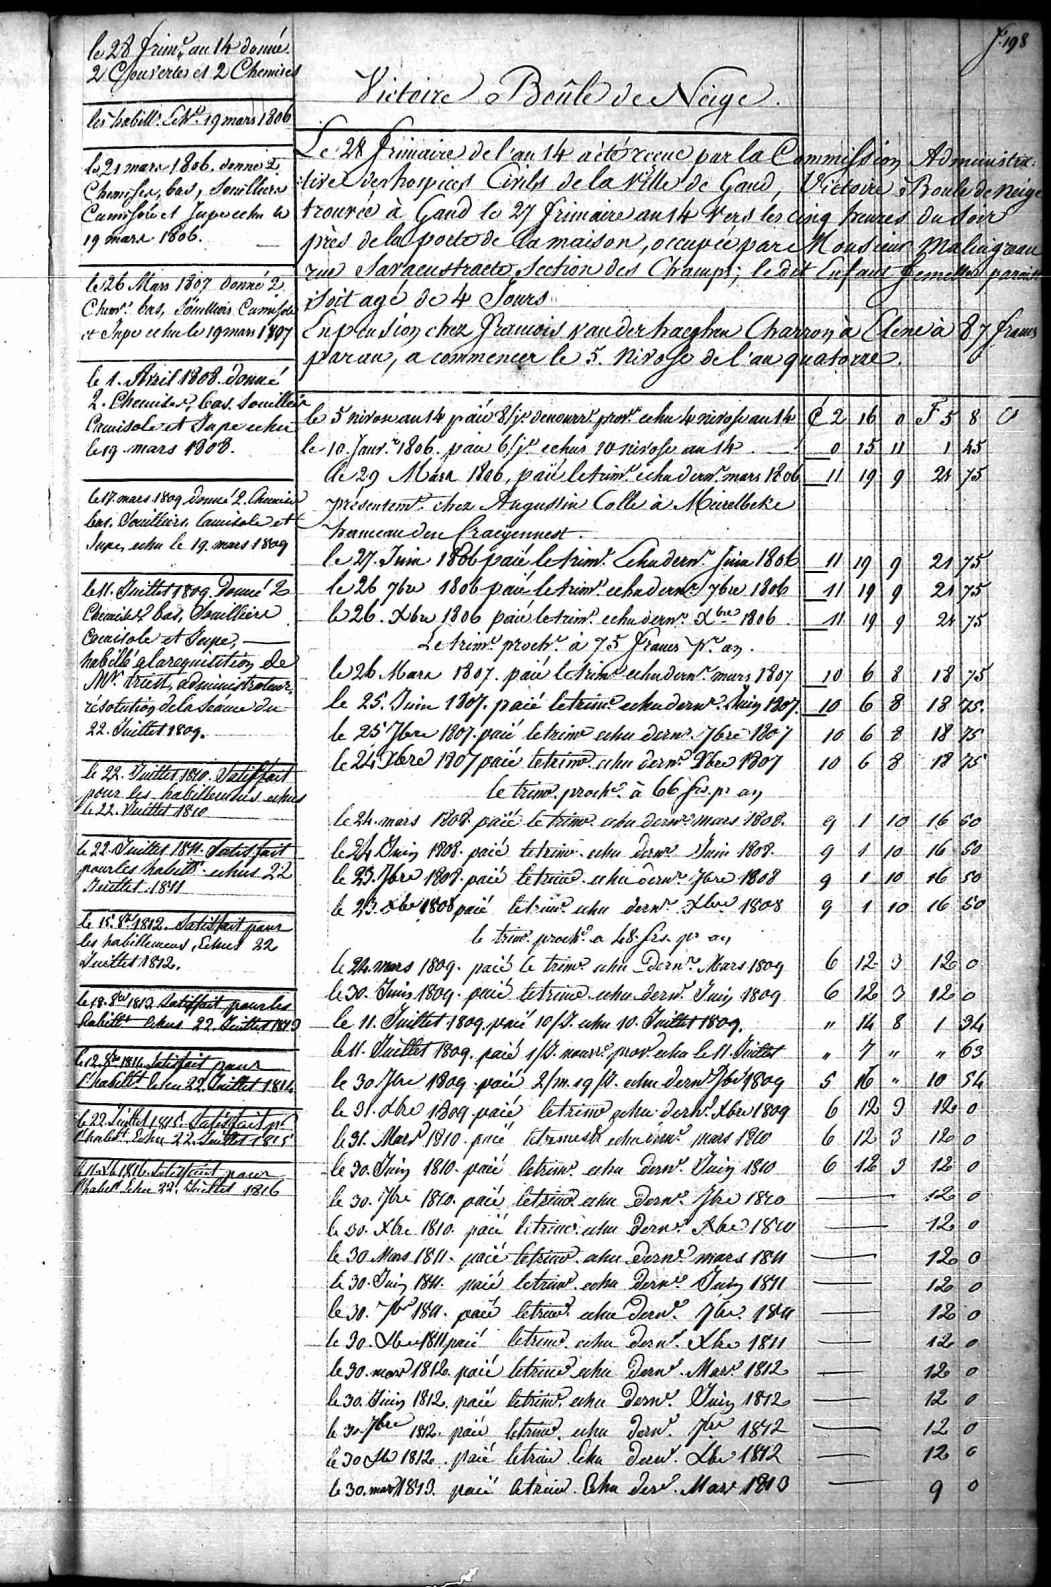 f° 198
Victoire Boûle de Neige.
le 28 frimre au 14 donné
2 Couvertes et 2 Chemises
les habillts. 19 mars 1806
le 21 mars 1806. donné 2
Chemises, bas, Souilliers
Camisole et Jupe echu le
19 mars 1806.
le 26 Mars 1807 donné 2
Chems. bas, Souilliers Camisole
et Jupe echu le 19 mars 1807
le 1. Avril 1808. donné
2. Chemises, bas. Souilliers
Camisole et Jupe echu
le 19 mars 1808.
le 17. mars 1809 donné 2. Chemises
bas. Souilliers. Camisole et
Jupe, echu le 19. mars 1809
le 11. Juillet 1809. Donné 2
Chemises bas, Souilliers
Camisole et Jupe,
habillé a la requisition de
Mr. triest, administrateur,
résolution de la séance du
22. Juillet 1809.
le 22. Juillet 1810. Satisfait
pour les habillemens echus
le 22. Juillet 1810
le 22. Juillet 1811. Satisfait
pour les habillts. echus 22
Juillet 1811
le 15. 8re 1812. Satisfait pour
les habillemens, Echus 22
Juillet 1812.
le 18. 8bre 1813. Satisfait pour les
habillts Echus 22. Juillet 1813
le 12. 8re 1814. Satisfait pour
l'habillt Echu 22. Juillet 1814
le 22. Juillet 1815. Satisfait pr
l'habillt. Echu 22. Juillet 1815
1816. Satisfait pour
l'habillt Echu 22. Juillet 1816
Le 28 frimaire de l'an 14 a été recue par la Commission Administra-
tive des hospices Civils de la Ville de Gand, Victoire Boule de neige
trouvée à Gand le 27 frimaire an 14 vers les cinq heures du soir
près de la porte de la maison, occupée par Monsieur Malingreau
rue Savaenstraete, Section des Champs; le dit Enfant femelle paroit
soit agé de 4 Jours
En pension chez francois vanderhaeghen Charron à Elene à 87 francs
par an, a commencer le 5. nivose de l'an quatorze.
le 5 nivose an 14 paié 8/js. de nourre. prove. echu 4 nivose an 14 £ 2 16 0 F 5 8 0
le 10. Janvr. 1806. paié 6/js echus 10 nivose an 14 0 15 11 1 45
le 29 Mars 1806, paié le trime. echu dernr. mars 1806 11 19 9 21 75
présentemt. chez Augustin Colle à Meirelbeke
hameau den Craeyennest.
le 27. Juin 1806 paié le trime. Echu dernr. Juin 1806 11 19 9 21 75
le 26 7bre 1806 paié le trime. echu dernr. 7bre 1806 11 19 9 21 75
le 26. Xbre 1806 paié le trime. echu dernr. Xbre 1806 11 19 9 21 75
Le trime. proche. à 75 francs pr. an.
le 26 Mars 1807. paié le trime echu dernr. mars 1807 10 6 8 18 75
le 25. Juin 1807. paié le trime. echu dernr. Juin 1807. 10 6 8 18 75.
le 25 7bre 1807. paié le trime echu dernr. 7bre 1807 10 6 8 18 75
le 24 Xbre 1807 paié le trime. echu dernr. Xbre 1807 10 6 8 18 75
le trime. proche. à 66 frs. pr an
le 24. mars 1808. paié le trime. echu dernr. mars 1808. 9 1 10 16 50
le 24 Juin 1808. paié le trime. echu dernr. Juin 1808. 9 1 10 16 50
le 23. 7bre 1808. paié le trime. echu dernr. 7bre 1808 9 1 10 16 50
le 23. Xbre 1808 paié le trime. echu dernr. Xbre 1808 9 1 10 16 50
le trime. proche. a 48. frs. pr an
le 24. mars 1809. paié le trime. echu Dernr. Mars 1809 6 12 3 12 0
le 30. Juin 1809. paié le trime. echu dernr. Juin 1809 6 12 3 12 0
le 11. Juillet 1809. paié 10/J. echu 10. Juillet 1809. " 14 8 1 34
le 11. Juillet 1809. paié 1/J. nourre. prov echu le 11. Juillet " 7 " " 63
le 30 7bre 1809. paié 2/m. 19/J. echu dernr 7bre 1809 5 16 " 10 54
le 31. Xbre 1809 paié le trime. echu dernr. Xbre 1809 6 12 3 12 0
le 31. Mars 1810. paié le trimestre echu dernr. mars 1810 6 12 3 12 0
le 30. Juin 1810. paié le trime. echu dernr. Juin 1810 6 12 3 12 0
le 30. 7bre 1810. paié le trime. echu dernr. 7bre 1810 12 0
le 30. Xbre 1810. paié le trime. echu dernr. Xbre 1810 12 0
le 30 Mars 1811. paié le trime. echu dernr. mars 1811 12 0
le 30. Juin 1811. paié le trime. echu dernr. Juin 1811 12 0
le 30. 7br 1811. paié le trime. echu dernr. 7bre. 1811 12 0
le 30. Xbre 1811 paié le trime. echu dernr. Xbre 1811 12 0
le 30. mars 1812. paié le trime echu dernr. Mars. 1812 12 0
le 30. Juin 1812. paié le trime. echu dernr. Juin 1812 12 0
le 30. 7bre 1812. paié le trime. echu dernr. 7bre 1812 12 0
le 30 Xbre 1812. paié le trime. Echu dernr. Xbre 1812 12 0
le 30. mars 1813. paié le trime. Echu dernr. Mars 1813 9 0